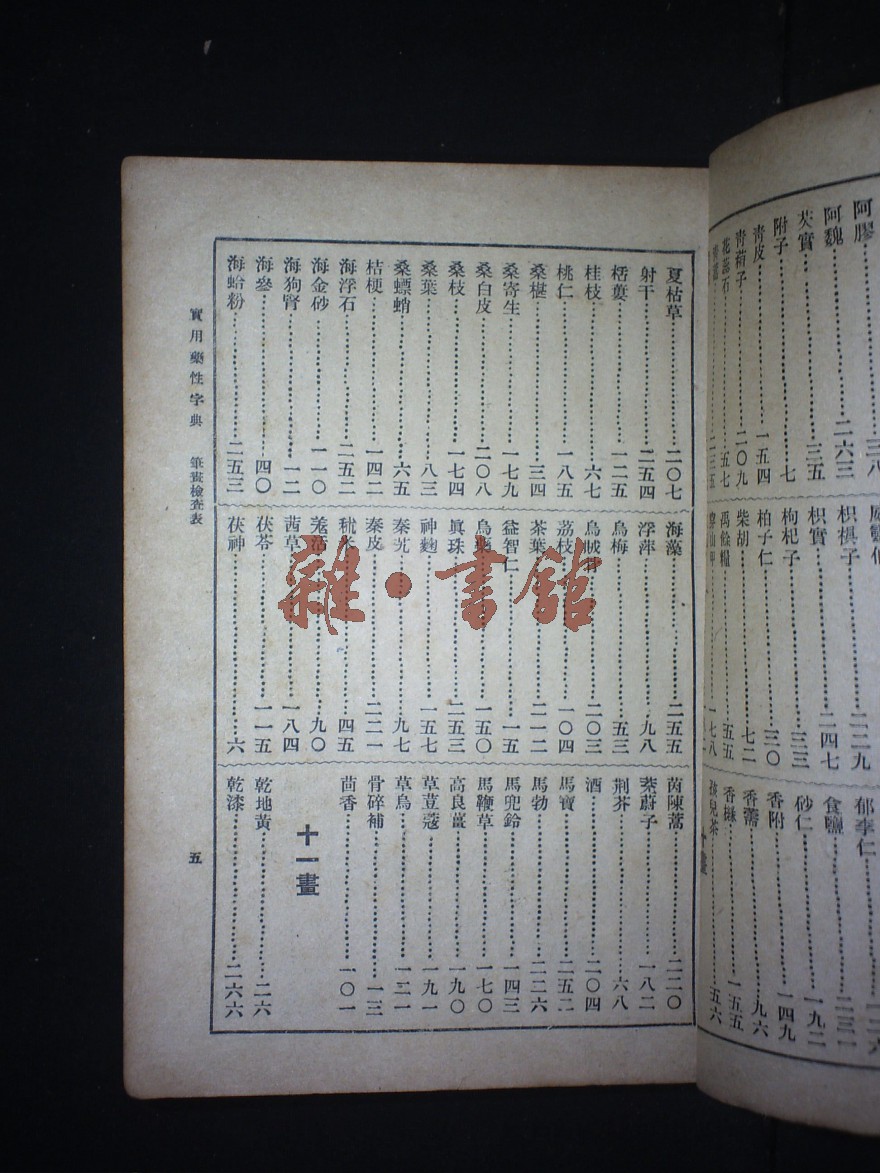 阿膠 三八
阿魏 二六三
芡實 三五
附子 七
青皮 一五四
青葙子 二〇九
花蕊石 五七
二三五
枳椇子 二二九
枳實 二四七
枸杞子 三三
柏子仁 三〇
柴胡 七二
禹餘糧 五五
一七八
郁李仁
食鹽 二三一
砂仁 一九二
香附 一四九
香薷 九六
香櫞 一五五
孩兒茶 五六
夏枯草 二〇七
射干 二五四
栝蔞 一二五
桂枝 六七
桃仁 一八五
桑椹 三四
桑寄生 一七九
桑白皮 二〇八
桑枝 一七四
桑葉 八三
桑螵蛸 六五
桔梗 一四二
海浮石 二五二
海金砂 一一〇
海狗腎 一二
海參 四〇
海蛤粉 二五三
海藻 二五五
浮萍 九八
烏梅 五三
烏賊骨 二〇三
荔枝 一〇四
茶葉 二一二
益智仁 一五
烏藥 一五〇
眞珠 二五三
神麴 一五七
秦艽 九七
秦皮 二二一
秫米 四五
羌活 九〇
茜草 一八四
茯苓 一一五
茯神 六
茵陳蒿 二二〇
茺蔚子 一八二
荆芥 六八
酒 二〇四
馬寶 二五二
馬勃 二二六
馬兜鈴 一四三
馬鞭草 一七〇
高良薑 一九〇
草荳蔻 一九一
草烏 一二一
骨碎補 一三
茴香 一〇一
十一畫
乾地黃 二六
乾漆 二六六
實用藥性字典 筆畫檢查表
五
雜·書館